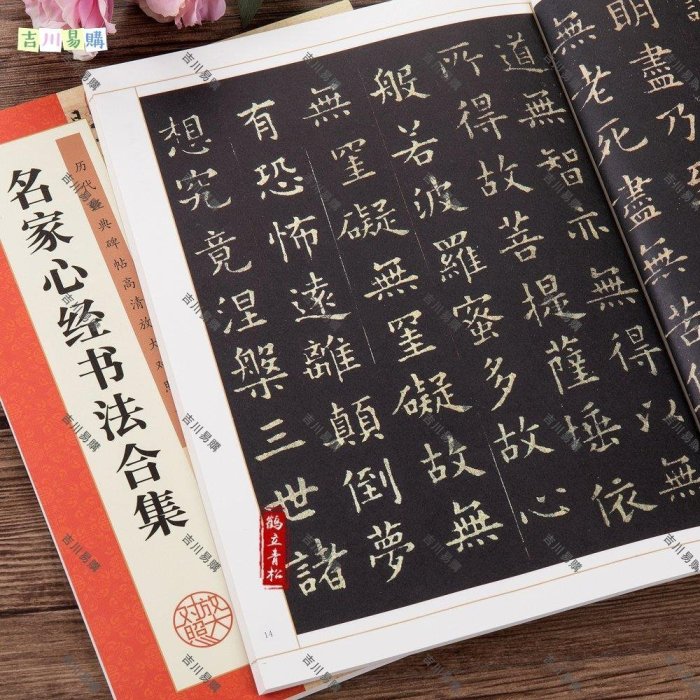 吉川易購
明盡乃
無老死盡無
道無智亦無得以無
所得故菩提薩埵依
般若波羅蜜多故心
無罣礙無罣礙故無
有恐怖遠離顛倒夢
想究竟涅槃三世諸
鶴立青松
14
历代经典碑帖高清放大对
名家心经书法合集
放大对照